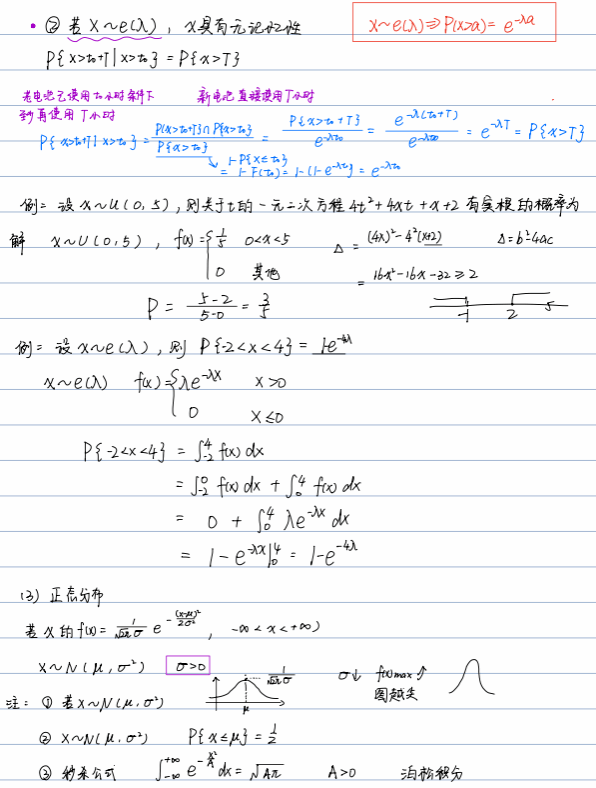 • ② 若 X~e(λ), X具有无记忆性
X~e(λ) ⇒ P(X>a) = e^{-λa}
P{X>t₀+T|X>t₀} = P{X>T}
老电池已使用t₀小时条件下 新电池直接使用T小时
到再使用T小时
P{X>t₀+T|X>t₀} = P{X>t₀+T}∩P{X>t₀} / P{X>t₀} = P{X>t₀+T} / e^{-λt₀} = e^{-λ(t₀+T)} / e^{-λt₀} = e^{-λT} = P{X>T}
↳ 1-P{X≤t₀}
= 1-F(t₀) = 1-(1-e^{-λt₀}) = e^{-λt₀}
例: 设 X~U(0,5), 则关于t的一元二次方程 4t²+4Xt+X+2 有实根的概率为
解 X~U(0,5), f(x)={ 1/5 0<x<5 Δ = (4x)²-4²(x+2) Δ=b²-4ac
0 其他 = 16x²-16x-32 ≥ 2
P = 5-2 / 5-0 = 3/5 -1 2 5
例: 设 X~e(λ), 则 P{-2<X<4} = 1-e^{-4λ}
X~e(λ) f(x)={ λe^{-λx} x>0
0 x≤0
P{-2<x<4} = ∫_{-2}^{4} f(x) dx
= ∫_{-2}^{0} f(x) dx + ∫_{0}^{4} f(x) dx
= 0 + ∫_{0}^{4} λe^{-λx} dx
= 1-e^{-λx}|_{0}^{4} = 1-e^{-4λ}
(3) 正态分布
若 X 的 f(x) = 1/√2π σ e^{-(x-μ)²/2σ²}, -∞<x<+∞)
X~N(μ,σ²) σ>0 1/√2π σ σ↓ f(x)max↑
图越尖
注: ① 若 X~N(μ,σ²) μ
② X~N(μ,σ²) P{X≤μ} = 1/2
③ 秒杀公式 ∫_{-∞}^{+∞} e^{-x²/A} dx = √Aπ A>0 泊松积分